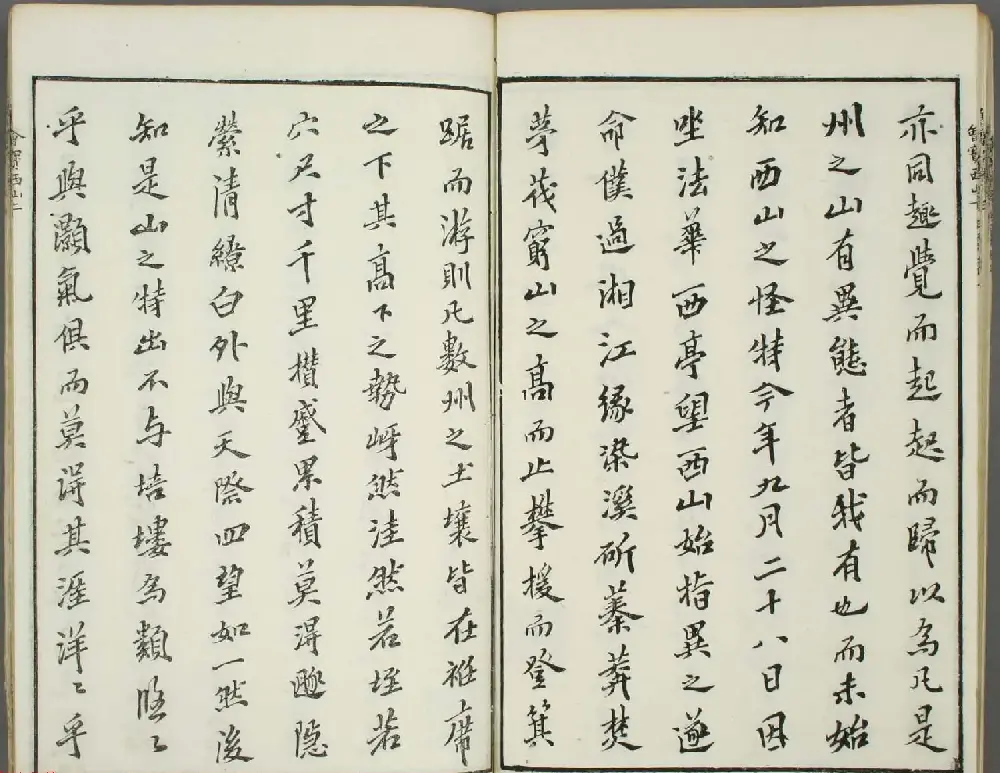 亦同趣覺而起起而歸以為凡是
州之山有異態者皆我有也而未始
知西山之怪特今年九月二十八日因
坐法華西亭望西山始指異之遂
命僕過湘江緣染溪斫蓁莽焚
茅茷窮山之高而止攀援而登箕
踞而游則凡數州之土壤皆在袵席
之下其高下之勢岈然洼然若垤若
穴尺寸千里攢蹙累積莫得遯隐
縈清繚白外與天際四望如一然後
知是山之特出不与培塿為類悠〻
乎與灝氣俱而莫得其涯洋〻乎